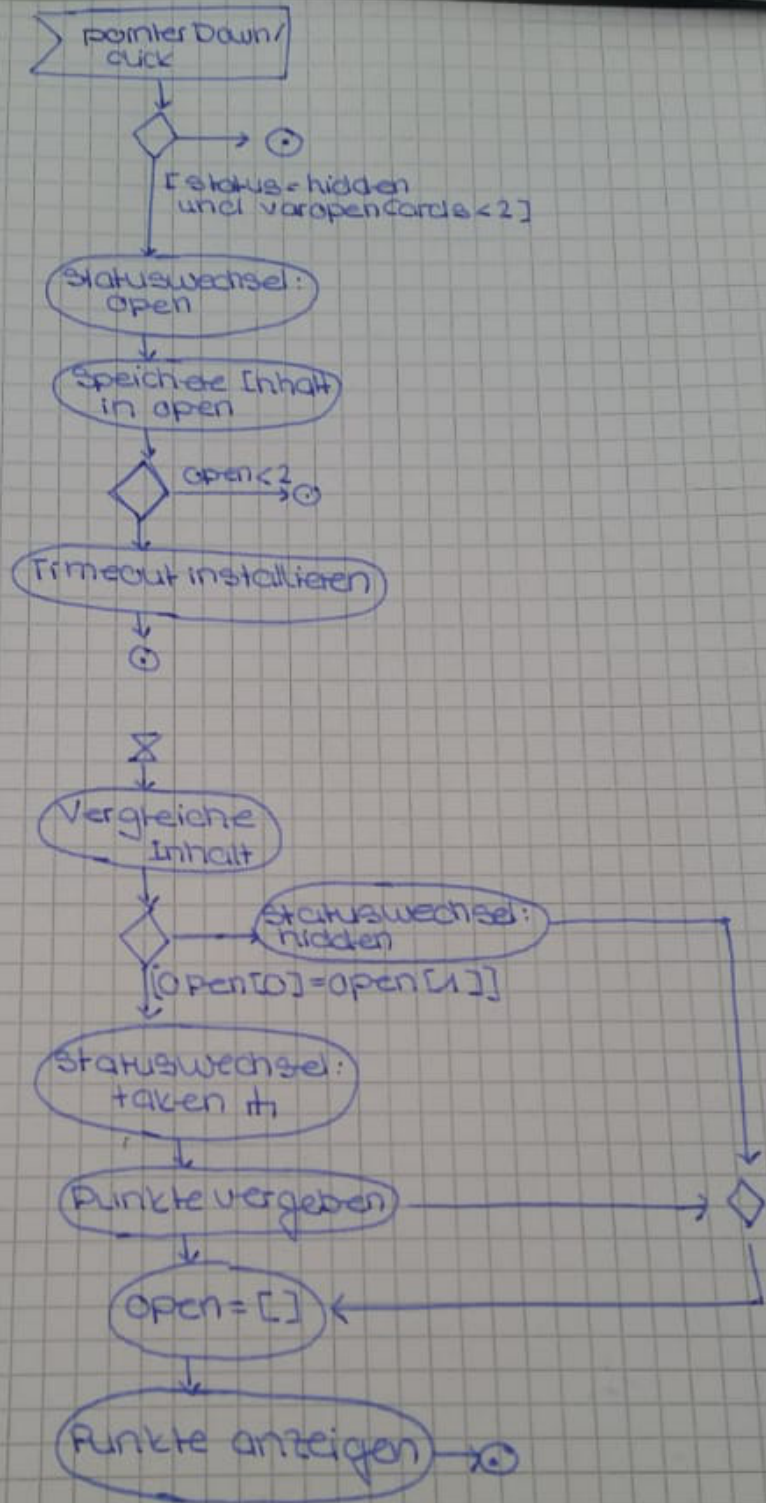 pointerDown/
click
[status=hidden
und varopenCards<2]
Statuswechsel:
open
Speichere Inhalt
in open
open<2
Timeout installieren
Vergleiche
Inhalt
Statuswechsel:
hidden
[open[0]=open[1]]
Statuswechsel:
taken
Punkte vergeben
open=[]
Punkte anzeigen